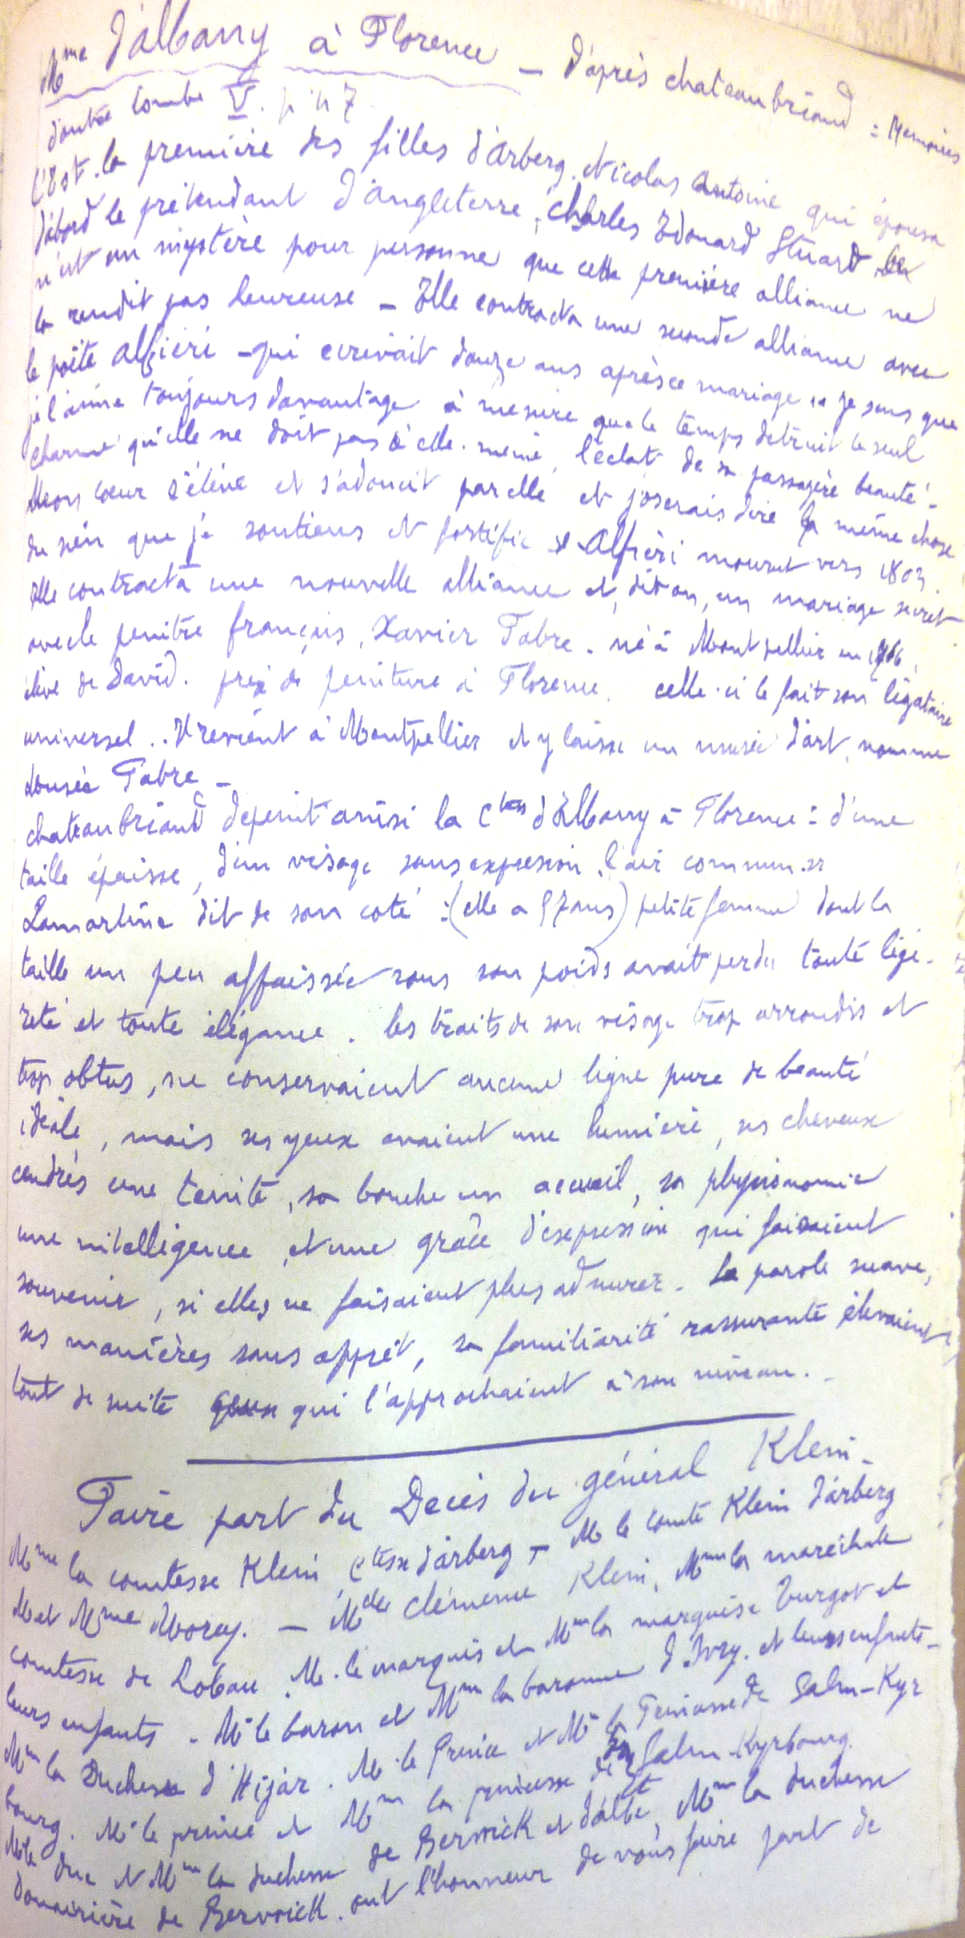 Mme d'Albany à Florence — d'après chateaubriand : Memoires
d'outre tombe V. p. 47
C'est la première des filles d'Arberg. Nicolas Antoine qui épousa
d'abord le prétendant d'Angleterre, Charles Edouard Stuard. Ce
n'est un mystère pour personne que cette première alliance ne
la rendit pas heureuse — Elle contracta une seconde alliance avec
le poète Alfieri — qui écrivait douze ans après ce mariage "je sens que
je l'aime toujours davantage à mesure que le temps detruit le seul
charme qu'elle ne doit pas à elle-même, l'éclat de sa passagère beauté —
Mon cœur s'élève et s'adoucit par elle et j'oserais dire la même chose
du sien que je soutiens et fortifie Alfieri mourut vers 1803
elle contracta une nouvelle alliance et, dit on, un mariage secret
avec le peintre français, Xavier Fabre. né à Montpellier en 1766,
élève de David. prix de peinture à Florence. celle-ci le fait son légataire
universel.. Il revient à Montpellier et y laisse un musée d'art, nommé
Musée Fabre —
chateaubriand depeint ainsi la Ctess d'Albany à Florence : d'une
taille épaisse, d'un visage sans expression, l'air commun."
Lamartine dit de son coté : (elle a 57 ans) petite femme dont la
taille un peu affaissée sous son poids avait perdu toute légè-
reté et toute élégance. les traits de son visage trop arrondis et
trop obtus, ne conservaient aucune ligne pure de beauté
idéale, mais ses yeux avaient une lumière, ses cheveux
cendrés une teinte, sa bouche un accueil, sa physionomie
une intelligence et une grâce d'expression qui faisaient
souvenir, si elles ne faisaient plus admirer. Sa parole suave,
ses manières sans apprêt, sa familiarité rassurante élevaient
tout de suite ceux qui l'approchaient à son niveau. —
Faire part du Deces du général Klein —
Mme la comtesse Klein, Ctesse d'Arberg — M le comte Klein d'Arberg
M et Mme Morey. — Mdelle Clémence Klein, Mme la maréchale
comtesse de Lobau, M. le marquis et Mme la marquise Turgot et
leurs enfants. M le baron et Mme la baronne d'Ivry. et leurs enfants —
Mme la Duchesse d'Hijar. M. le Prince et Me la Princesse de Salm-Kyr
bourg. M. le prince et Mme la princesse de Salm-Kyrbourg.
M le duc et Mme la duchesse de Berwick et d'Albe, Mme la duchesse
douairière de Berwick. ont l'honneur de vous faire part de